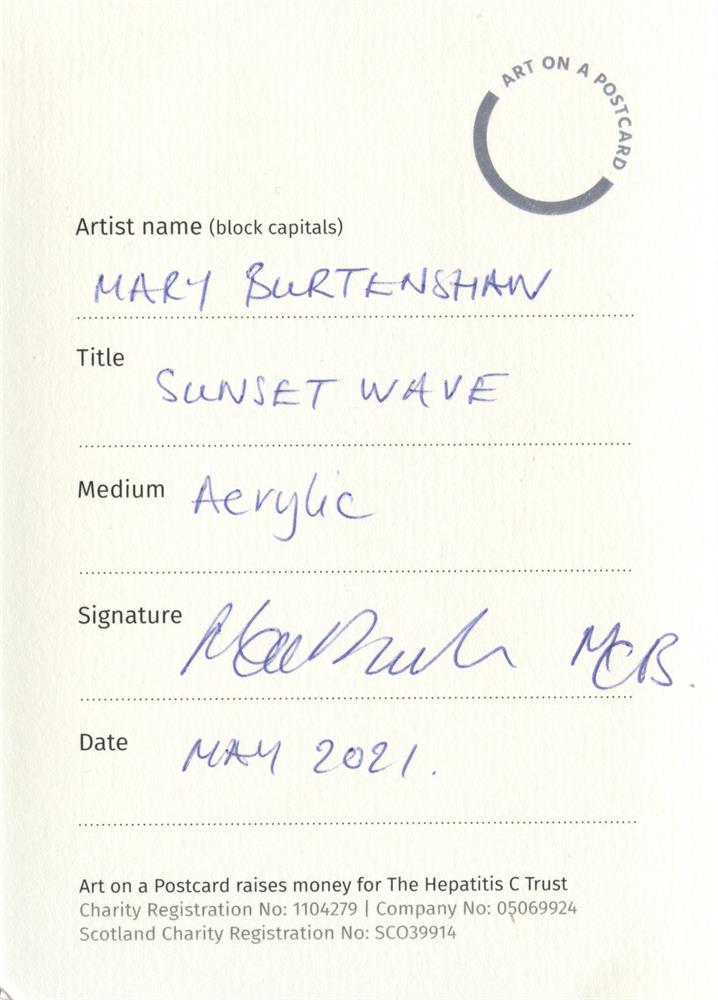 ART ON A POSTCARD
Artist name (block capitals)
MARY BURTENSHAW
Title
SUNSET WAVE
Medium Acrylic
Signature MCB.
Date MAY 2021.
Art on a Postcard raises money for The Hepatitis C Trust
Charity Registration No: 1104279 | Company No: 05069924
Scotland Charity Registration No: SCO39914